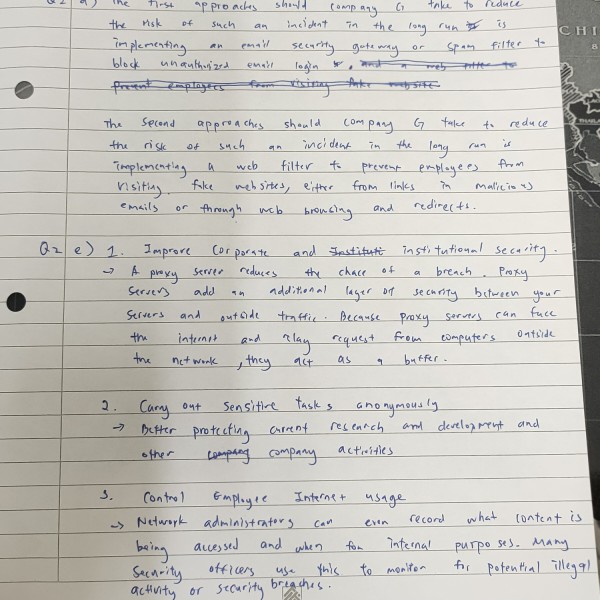 Q2 d) The first approaches should company G take to reduce
the risk of such an incident in the long run is
implementing an email security gateway or spam filter to
block unauthorized email login. and a web filter to
prevent employees from visiting fake website.
The second approaches should company G take to reduce
the risk of such an incident in the long run is
implementing a web filter to prevent employees from
visiting fake websites, either from links in malicious
emails or through web browsing and redirects.
Q2 e) 1. Improve corporate and Instituti institutional security.
→ A proxy server reduces the chace of a breach. Proxy
servers add an additional layer of security between your
servers and outside traffic. Because proxy servers can face
the internet and relay request from computers outside
the network, they act as a buffer.
2. Carry out sensitive tasks anonymously
→ Better protecting current research and development and
other company company activities
3. Control Employee Internet usage
→ Network administrators can even record what content is
being accessed and when for internal purposes. Many
Security officers use this to monitor for potential illegal
activity or security breaches.
CHI